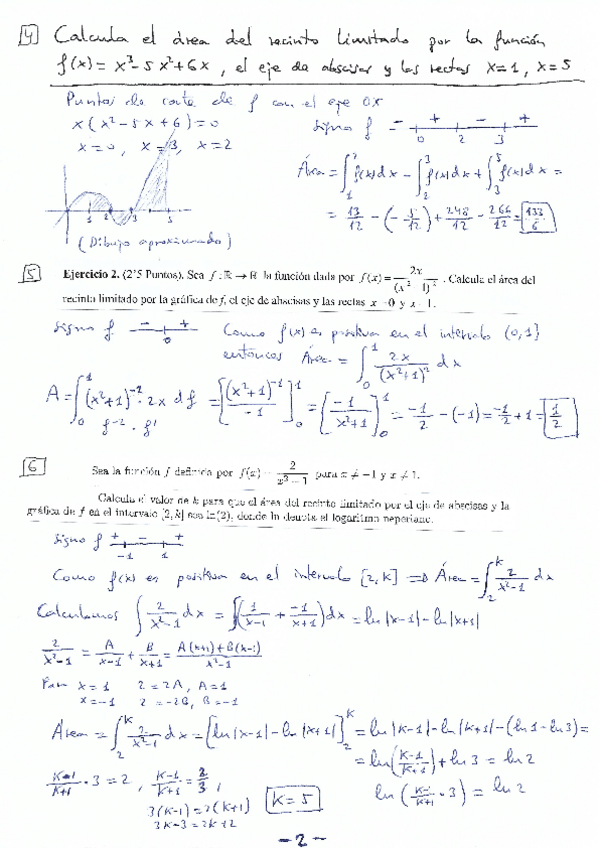 4 Calcula el área del recinto limitado por la función
f(x) = x³-5x²+6x, el eje de abscisas y las rectas x=1, x=5
Puntos de corte de f con el eje OX
x(x²-5x+6)=0
x=0, x=3, x=2
Signo f - + - +
0 2 3
Área = ∫₁² f(x)dx - ∫₂³ f(x)dx + ∫₃⁵ f(x)dx =
= 13/12 - (-5/12) + =133/6
1 2 3 5
(Dibujo aproximado)
5 Ejercicio 2. (2'5 Puntos). Sea f : ℝ → ℝ la función dada por f(x) = 2x/(x² 1)². Calcula el área del
recinto limitado por la gráfica de f, el eje de abscisas y las rectas x 0 y x 1.
Signo f - +
0
Como f(x) es positiva en el intervalo (0,1)
entonces Área = ∫₀¹ 2x/(x²+1)² dx
A = ∫₀¹ (x²+1)⁻²·2x df = [(x²+1)⁻¹/-1]₀¹ = [-1/(x²+1)]₀¹ = -1/2 - (-1) = -1/2 + 1 = 1/2
f⁻² · f'
6 Sea la función f definida por f(x) = 2/(x²-1) para x ≠ -1 y x ≠ 1.
Calcula el valor de k para que el área del recinto limitado por el eje de abscisas y la
gráfica de f en el intervalo [2,k] sea ln(2), donde ln denota el logaritmo neperiano.
Signo f + - +
-1 1
Como f(x) es positiva en el intervalo [2,K] ⇒ Área = ∫₂ᴷ 2/(x²-1) dx
Calculamos ∫ 2/(x²-1) dx = ∫(1/(x-1) + -1/(x+1))dx = ln|x-1| - ln|x+1|
2/(x²-1) = A/(x-1) + B/(x+1) = A(x+1)+B(x-1)/x²-1
Para x=1 2=2A, A=1
x=-1 2=-2B, B=-1
Área = ∫₂ᴷ 2/(x²-1) dx = [ln|x-1| - ln|x+1|]₂ᴷ = ln|K-1| - ln|K+1| - (ln1 - ln3) =
= ln((K-1)/(K+1)) + ln 3 = ln 2
(K-1)/(K+1) · 3 = 2, (K-1)/(K+1) = 2/3, ln((K-1)/(K+1) · 3) = ln 2
3(K-1) = 2(K+1) K=5
3K-3=2K+2
-2-